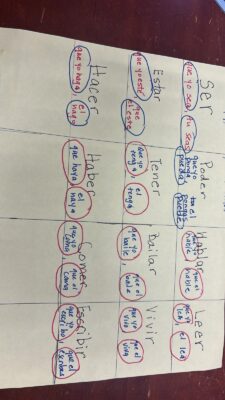 Ser
que yo sea
el sea
Poder
que yo
puedas
que el
puede
Hablar
que yo
hable
que el
hable
Leer
que yo
lea, el lea
Estar
que yo esté
el esté
Tener
que yo
tenga
el
tenga
Bailar
que yo
baile,
que el
baile
Vivir
que yo
viva
que el
viva
Hacer
que yo haga
el
haga
Haber
que haya,
el
haya
Comer
que yo
coma,
que el
coma
Escribir
que yo
que el